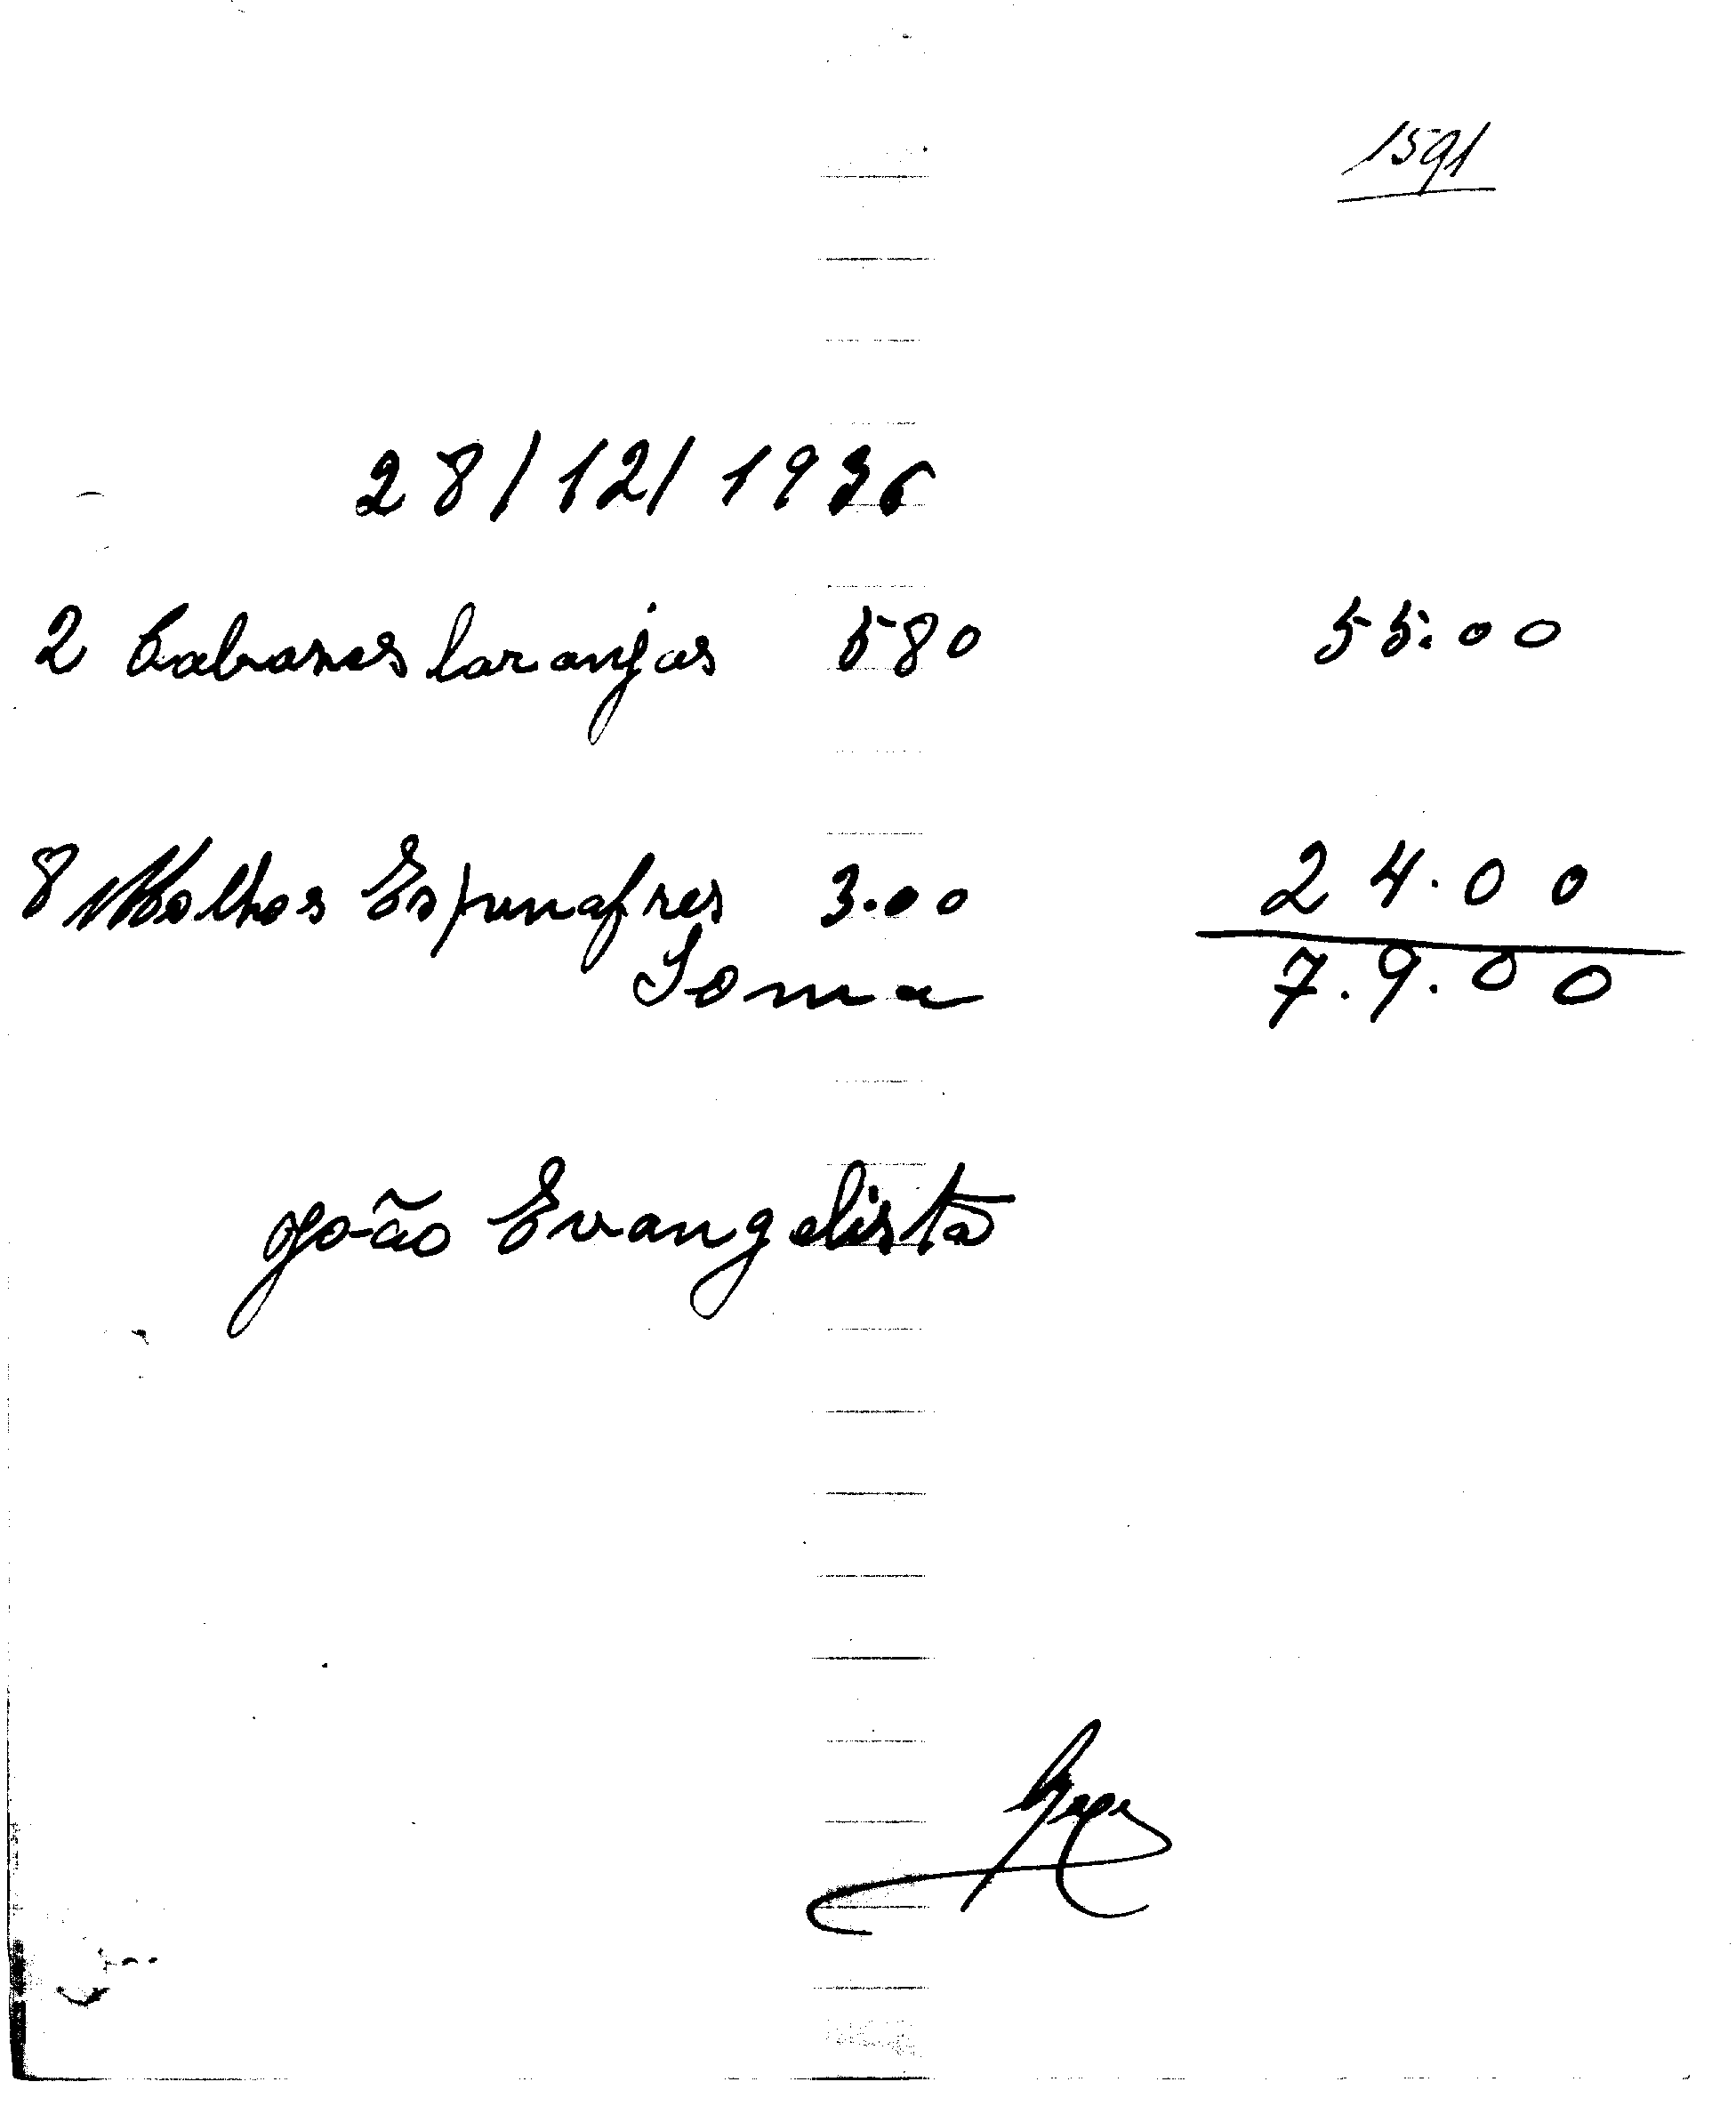 1591
28/12/1936
2 Cabanes laranjas 580 55.00
8 Molhos Espunafres 3.00 24.00
Soma 7.9.00
João Evangelista